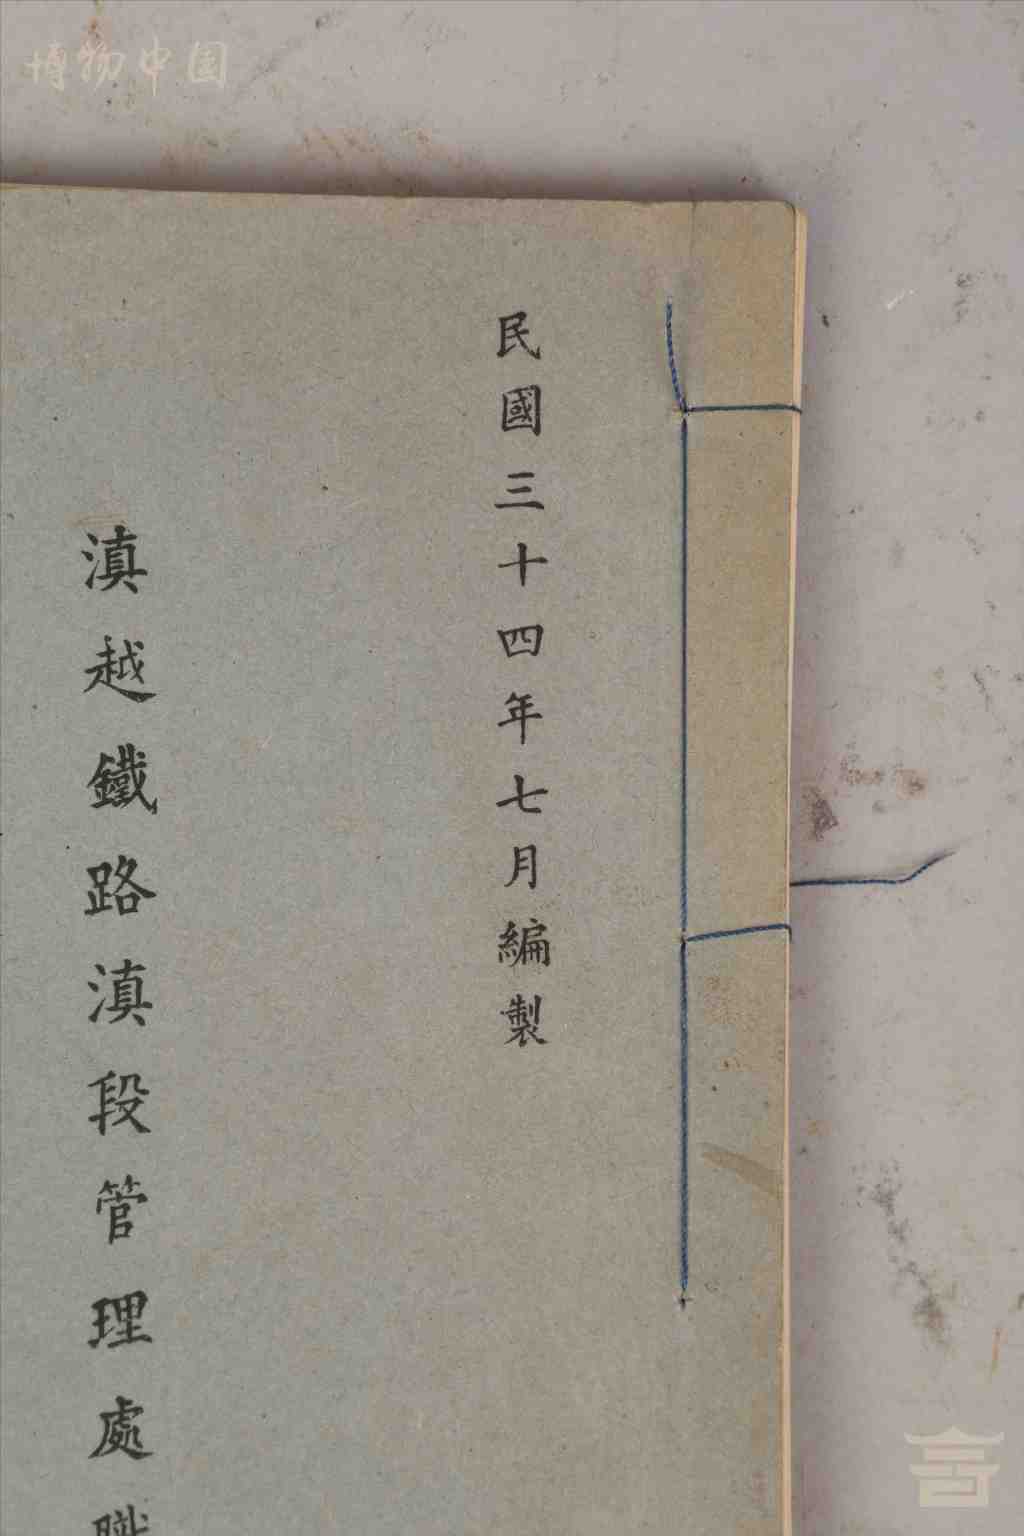 博物中国
民國三十四年七月編製
滇越鐵路滇段管理處職